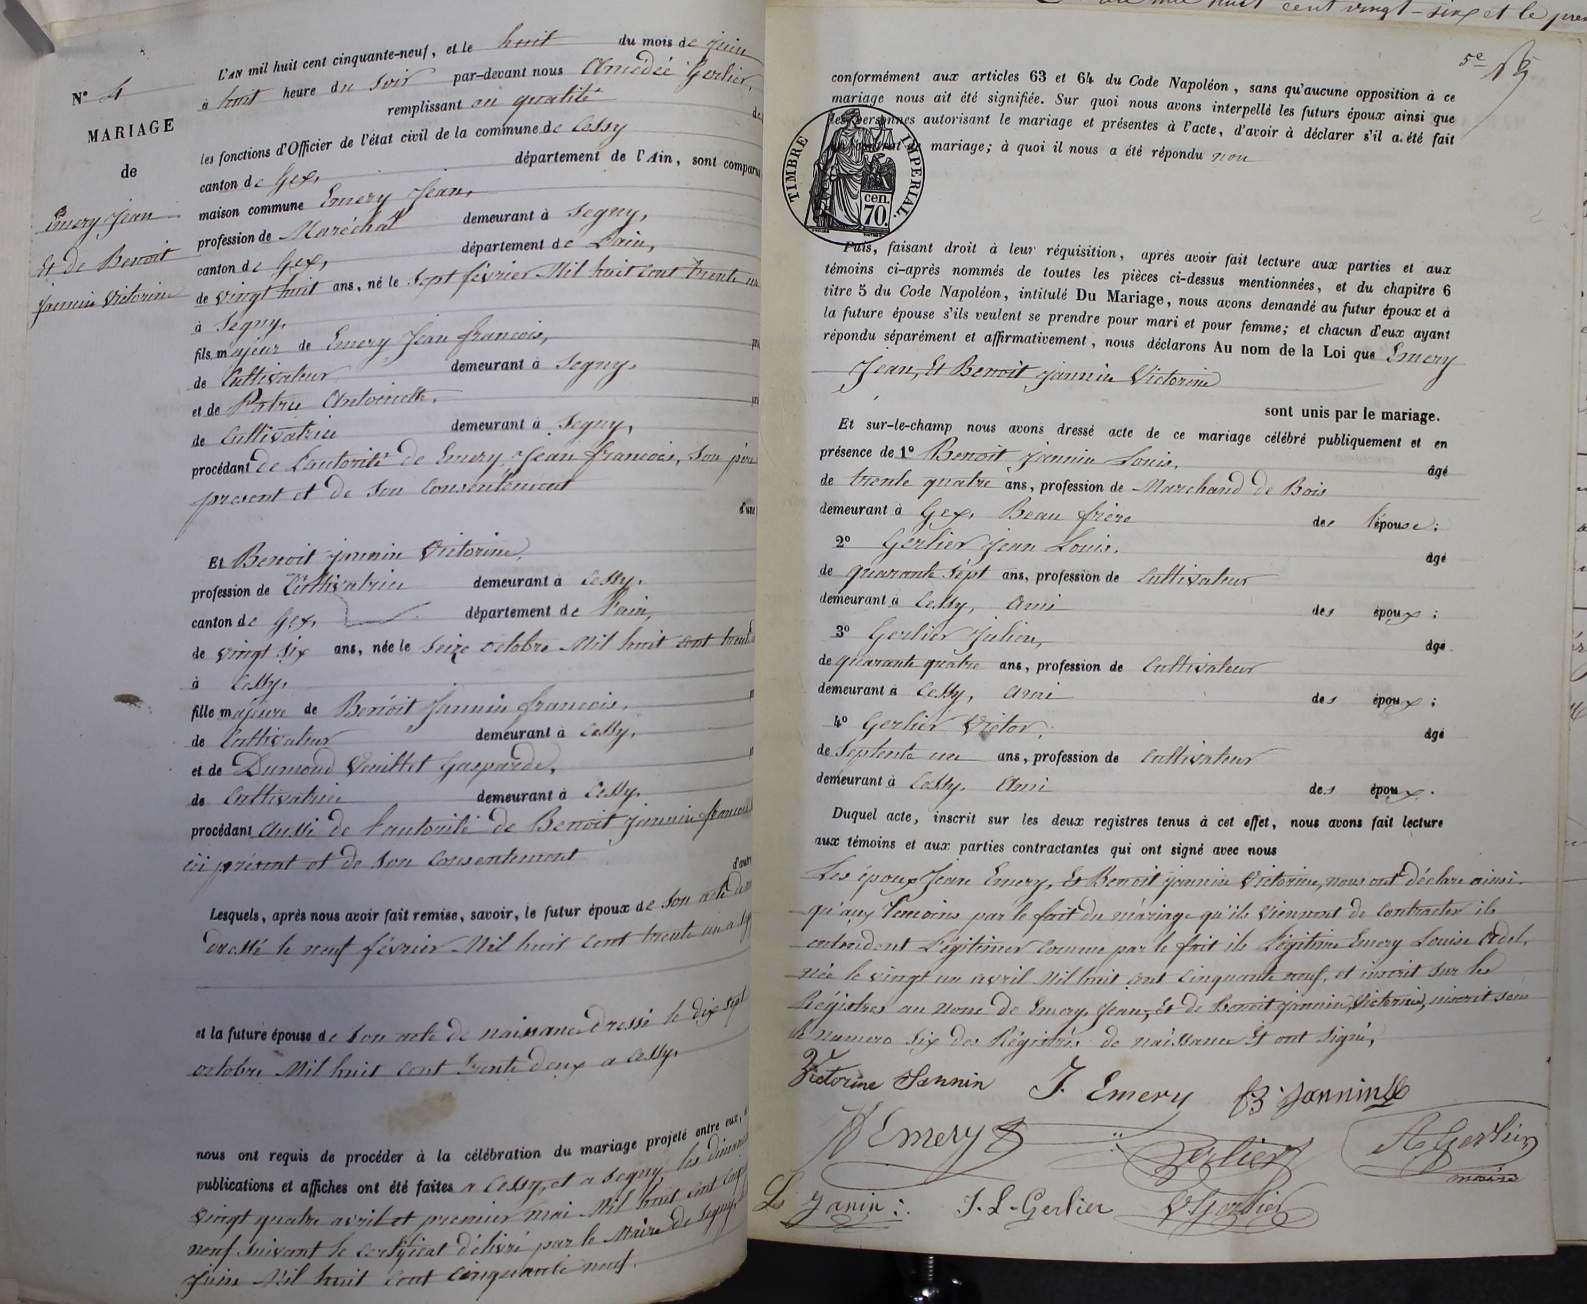 N° 4
MARIAGE
de
Emery Jean
et de Benoit
Jannin Victorine
L'AN mil huit cent cinquante-neuf, et le huit du mois de juin
à huit heure du soir par-devant nous Amédée Gerlier,
remplissant en qualité de
les fonctions d'Officier de l'état civil de la commune de Cessy
canton de Gex, département de l'Ain, sont comparus
maison commune Emery Jean,
profession de Maréchal demeurant à Segny,
canton de Gex, département de l'ain,
de vingt huit ans, né le sept février Mil huit cent trente un
à Segny,
fils majeur de Emery Jean francois,
de Cultivateur demeurant à Segny,
et de Patru Antoinette,
de Cultivatrice demeurant à Segny,
procédant de l'autorité de Emery Jean francois, son père
présent et de son consentement
d'une
Et Benoit jannin Victorine,
profession de Cultivatrice demeurant à Cessy,
canton de Gex, département de l'ain,
de vingt six ans, née le seize octobre Mil huit cent trente
à Cessy,
fille majeure de Benoit Jannin francois,
de Cultivateur demeurant à Cessy,
et de Dumond Vuillet Gasparde,
de Cultivatrice demeurant à Cessy,
procédant aussi de l'autorité de Benoit jannin francois
ici présent et de son consentement
d'autre
Lesquels, après nous avoir fait remise, savoir, le futur époux de son acte de
dressé le neuf février Mil huit cent trente un a
et la future épouse de son acte de naissance dressé le dix sept
octobre Mil huit cent trente deux a Cessy,
nous ont requis de procéder à la célébration du mariage projeté entre eux,
publications et affiches ont été faites a Cessy, et a Segny les dimanches
vingt quatre avril et premier mai Mil huit cent cinq
neuf suivant le certificat délivré par le Maire de Segny,
juin Mil huit cent cinquante neuf.
au mil huit cent vingt-six et le pre
5e
conformément aux articles 63 et 64 du Code Napoléon, sans qu'aucune opposition à ce
mariage nous ait été signifiée. Sur quoi nous avons interpellé les futurs époux ainsi que
les personnes autorisant le mariage et présentes à l'acte, d'avoir à déclarer s'il a été fait
mariage; à quoi il nous a été répondu non
TIMBRE IMPERIAL.
cen.
70.
Puis, faisant droit à leur réquisition, après avoir fait lecture aux parties et aux
témoins ci-après nommés de toutes les pièces ci-dessus mentionnées, et du chapitre 6
titre 5 du Code Napoléon, intitulé Du Mariage, nous avons demandé au futur époux et à
la future épouse s'ils veulent se prendre pour mari et pour femme; et chacun d'eux ayant
répondu séparément et affirmativement, nous déclarons Au nom de la Loi que Emery
Jean, Et Benoit jannin Victorine
sont unis par le mariage.
Et sur-le-champ nous avons dressé acte de ce mariage célébré publiquement et en
présence de 1° Benoit jannin Louis, âgé
de trente quatre ans, profession de Marchand de Bois
demeurant à Gex, Beau frère de l'épouse;
2° Gerlier Jean Louis, âgé
de quarante sept ans, profession de Cultivateur
demeurant à Cessy, Ami des époux;
3° Gerlier Julien, âgé
de quarante quatre ans, profession de Cultivateur
demeurant à Cessy, Ami des époux;
4° Gerlier Victor, âgé
de septente un ans, profession de Cultivateur
demeurant à Cessy, Ami des époux.
Duquel acte, inscrit sur les deux registres tenus à cet effet, nous avons fait lecture
aux témoins et aux parties contractantes qui ont signé avec nous
Les époux Jean Emery, Et Benoit jannin Victorine, nous ont déclare ainsi
qu'aux temoins par le fait du mariage qu'ils viennent de contracter ils
entendent Légitimer comme par le fait ils légitime Emery Louise Adel,
née le vingt un avril Mil huit cent cinquante neuf, et inscrit sur les
Régistres au nom de Emery Jean, Et de Benoit jannin Victorine, inscrit sous
le numero six des Régistres de naissance Et ont Signé,
Victorine Jannin J. Emery fs Jannin
Emery Gerlier A Gerlier
maire
Ls Janin: J. L. Gerlier V Gerlier